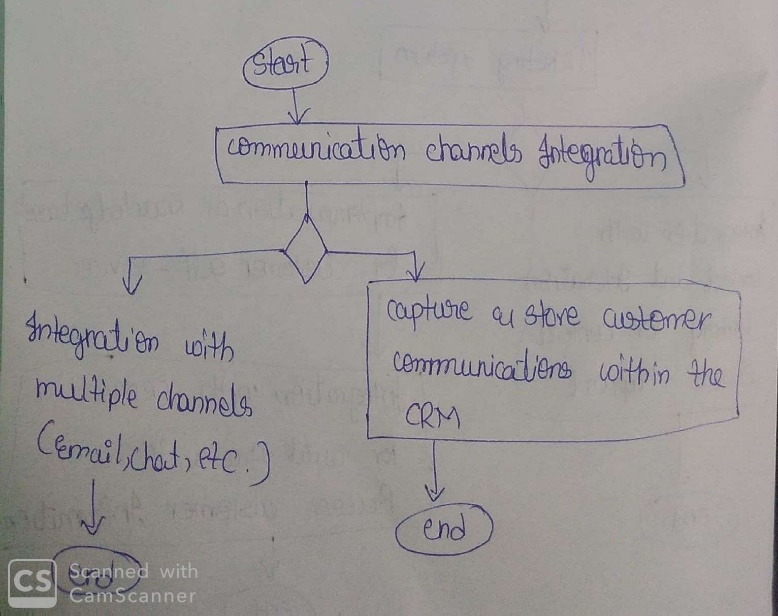 Start
communication channels Integration
Integration with
multiple channels
(email, chat, etc.)
End
capture & store customer
communications within the
CRM
end
CS Scanned with
CamScanner